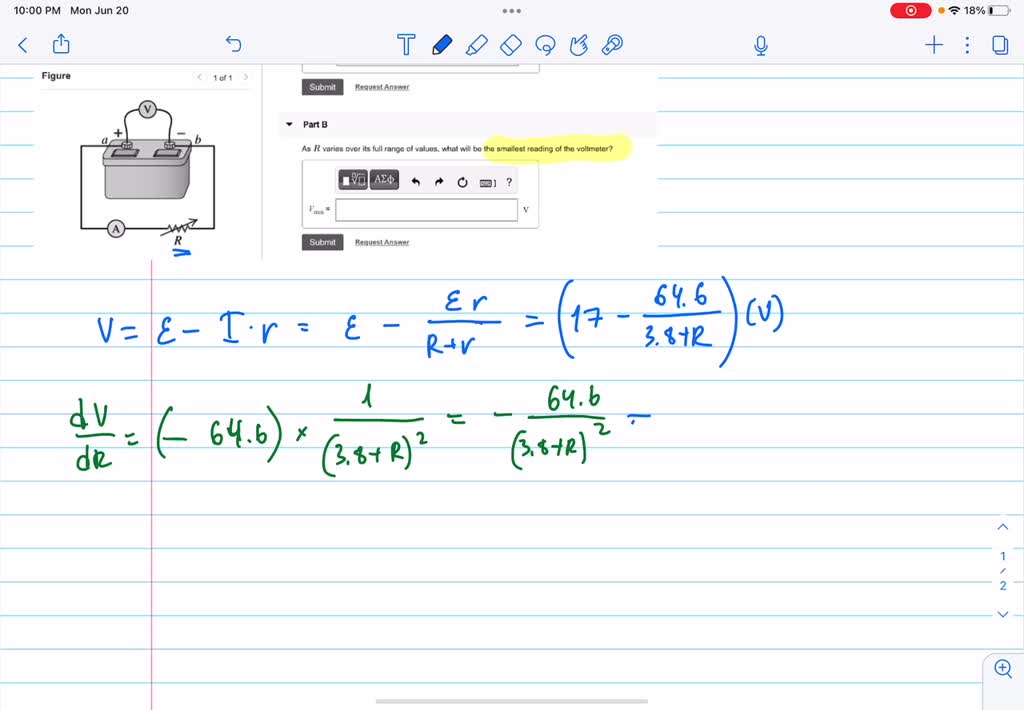 10:00 PM Mon Jun 20
18%
Figure
1 of 1
Submit
Request Answer
V
+
−
a
b
A
R
Part B
As R varies over its full range of values, what will be the smallest reading of the voltmeter?
ΑΣΦ
?
Vmin =
V
Submit
Request Answer
V = ε − I · r = ε − εr/(R+r) = (17 − 64.6/(3.8+R)) (V)
dV/dR = (− 64.6) × 1/(3.8+R)² = − 64.6/(3.8+R)² =
1
/
2